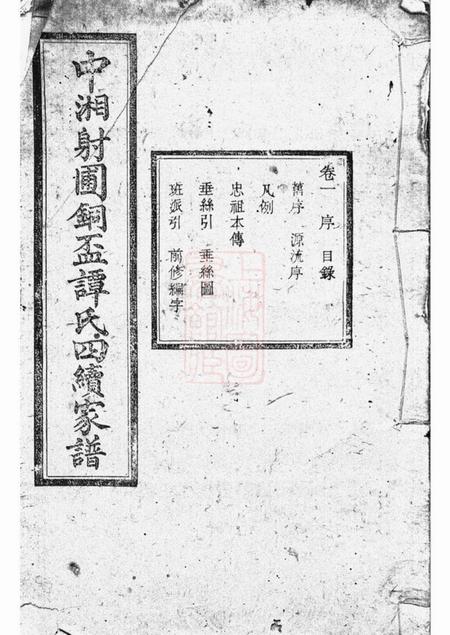 中湘射圃銅盃譚氏四續家譜
卷一 序 目錄
舊序 源流序
凡例
忠祖本傳
垂絲引 垂絲圖
班派引 前修緝字